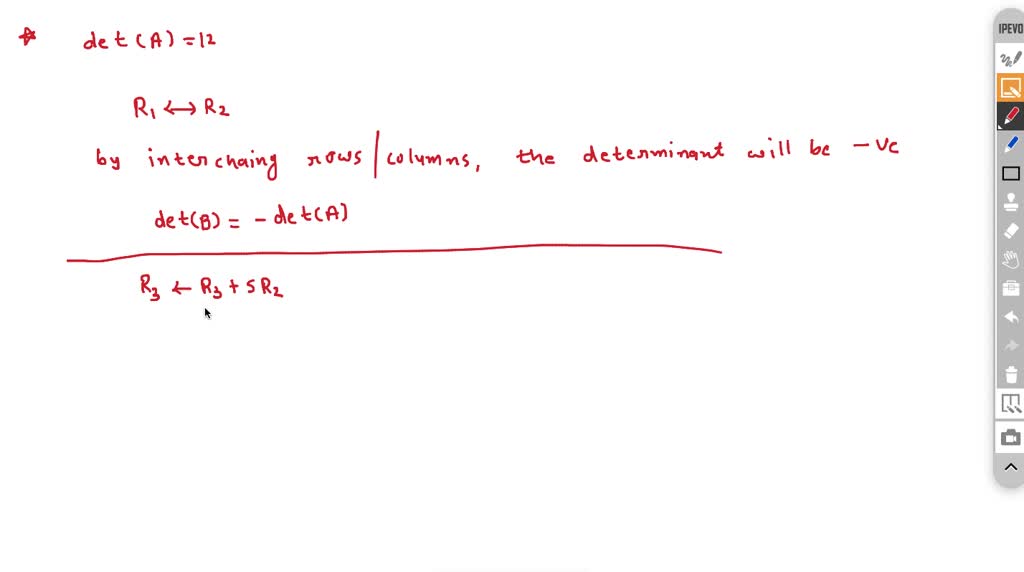 ☆ det(A) = 12
R₁ ↔ R₂
by interchaing rows | columns, the determinant will be -ve
det(B) = - det(A)
R₃ ← R₃ + 5R₂
IPEVO